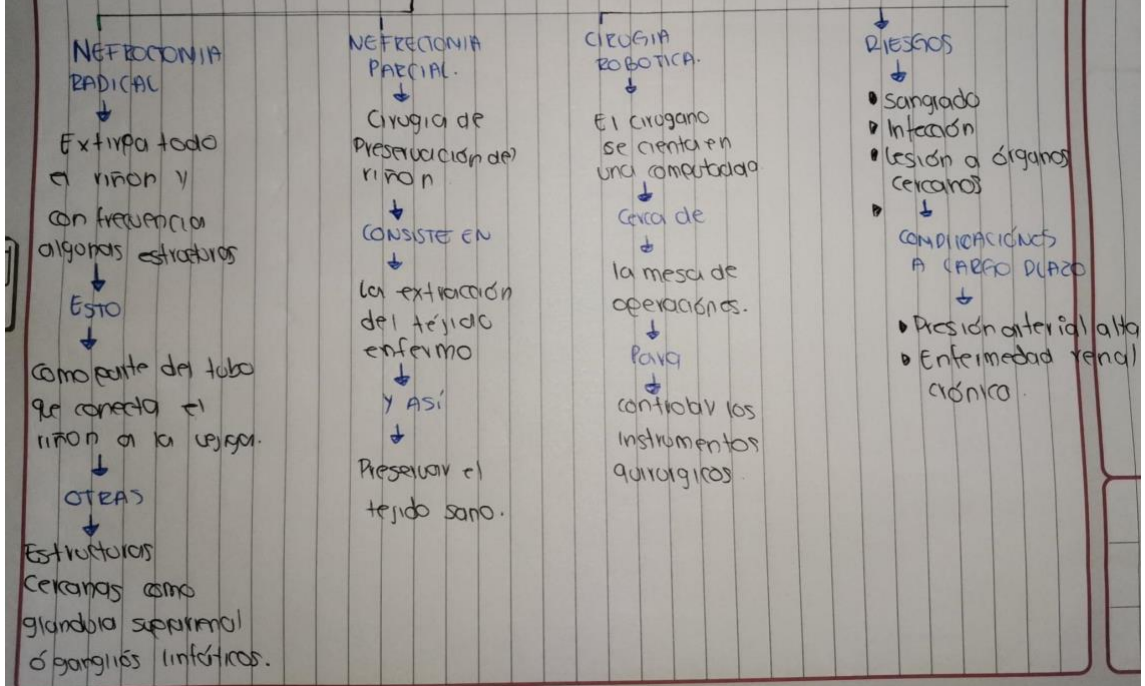 NEFROCTONIA
RADICAL
Extirpa todo
el riñon y
con frecuencia
algunas estructuras
ESTO
como parte del tubo
que conecta el
riñon a la vejiga.
OTRAS
Estructuras
cercanas como
glandula suprarrenal
ó ganglios linfáticos.
NEFRECTONIA
PARCIAL.
Cirugia de
Preservación del
riñon
CONSISTE EN
la extracción
del téjido
enfermo
Y ASÍ
Preservar el
tejido sano.
CIRUGIA
ROBOTICA.
El cirugano
se cienta en
una computadao
Cerca de
la mesa de
operaciónes.
Para
controlar los
instrumentos
quirurgicos
RIESGOS
• Sangrado
• Infección
• Lesión a órganos
cercanos
•
COMPLICACIÓNES
A LARGO PLAZO
• Presión arterial alta
• Enfermedad renal
crónica.